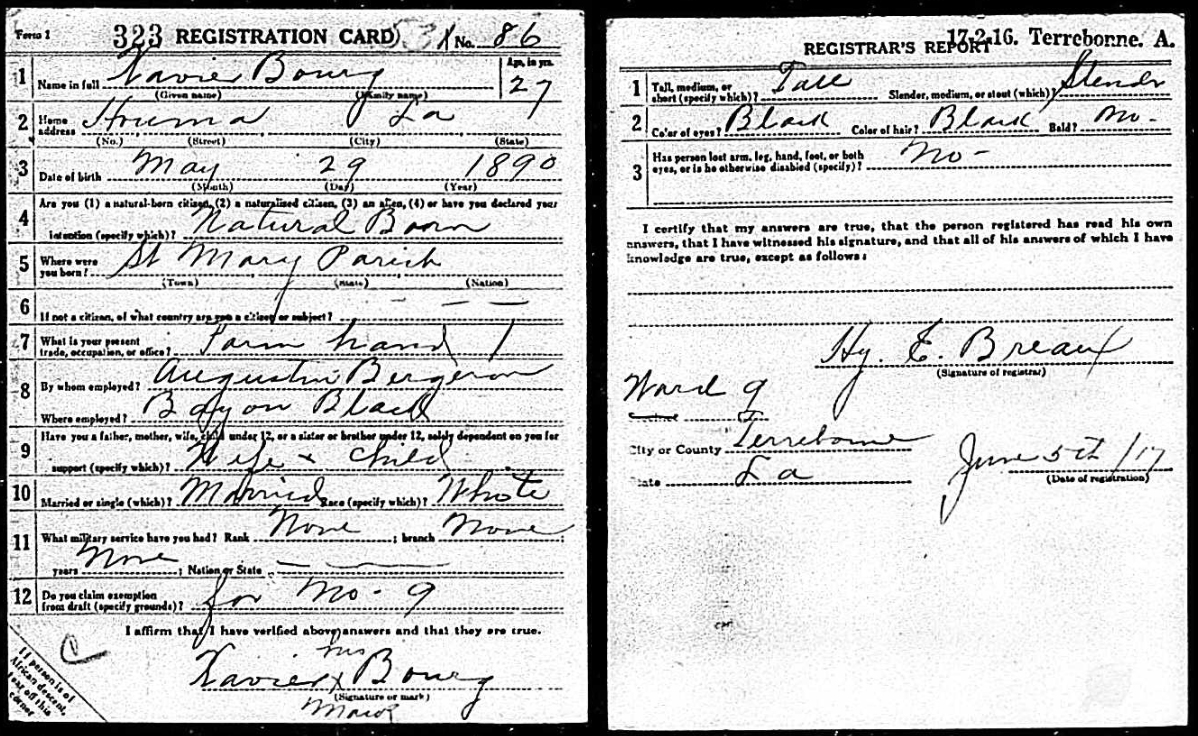 Form 1 323 REGISTRATION CARD No. 86
1 Name in full Xavier Bourg Age, in yrs. 27
(Given name) (Family name)
2 Home address Houma La
(No.) (Street) (City) (State)
3 Date of birth May 29 1890
(Month) (Day) (Year)
4 Are you (1) a natural-born citizen, (2) a naturalized citizen, (3) an alien, (4) or have you declared your
intention (specify which)? Natural Born
5 Where were you born? St Mary Parish
(Town) (State) (Nation)
6 If not a citizen, of what country are you a citizen or subject? — — —
7 What is your present trade, occupation, or office? Farm hand 1
8 By whom employed? Augustin Bergeron
Where employed? Bayou Black
9 Have you a father, mother, wife, child under 12, or a sister or brother under 12, solely dependent on you for
support (specify which)? Wife + child
10 Married or single (which)? Married Race (specify which)? White
11 What military service have you had? Rank None ; branch None ;
years None ; Nation or State — —
12 Do you claim exemption from draft (specify grounds)? for No. 9
I affirm that I have verified above answers and that they are true.
his
Xavier x Bourg
(Signature or mark)
mark
If person is of
African descent,
tear off this
corner
17-2-16. Terrebonne. A.
REGISTRAR'S REPORT
1 Tall, medium, or short (specify which)? Tall Slender, medium, or stout (which)? Slender
2 Color of eyes? Black Color of hair? Black Bald? No -
3 Has person lost arm, leg, hand, foot, or both
eyes, or is he otherwise disabled (specify)? No -
I certify that my answers are true, that the person registered has read his own
answers, that I have witnessed his signature, and that all of his answers of which I have
knowledge are true, except as follows:
Hy. E. Breaux
(Signature of registrar)
Ward 9
City or County Terrebonne
State La
June 5th/17
(Date of registration)